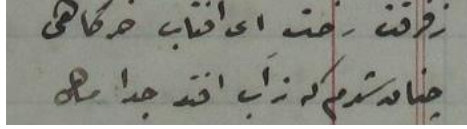 ز فرقت رخت ای آفتاب خرگاهی
چنان شدم که ز آب افتد جدا ماهی